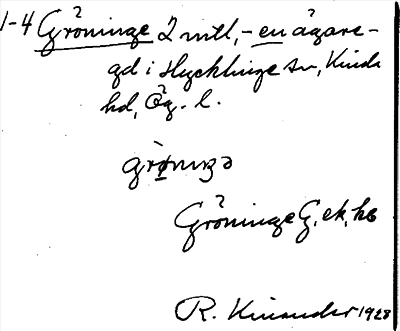 1-4 Gröninge 2 mtl, - en ägare -
gd i Hycklinge sn, Kinda
hd, Ög. l.
Gröninge G. ek. kb
R. Kinander 1928